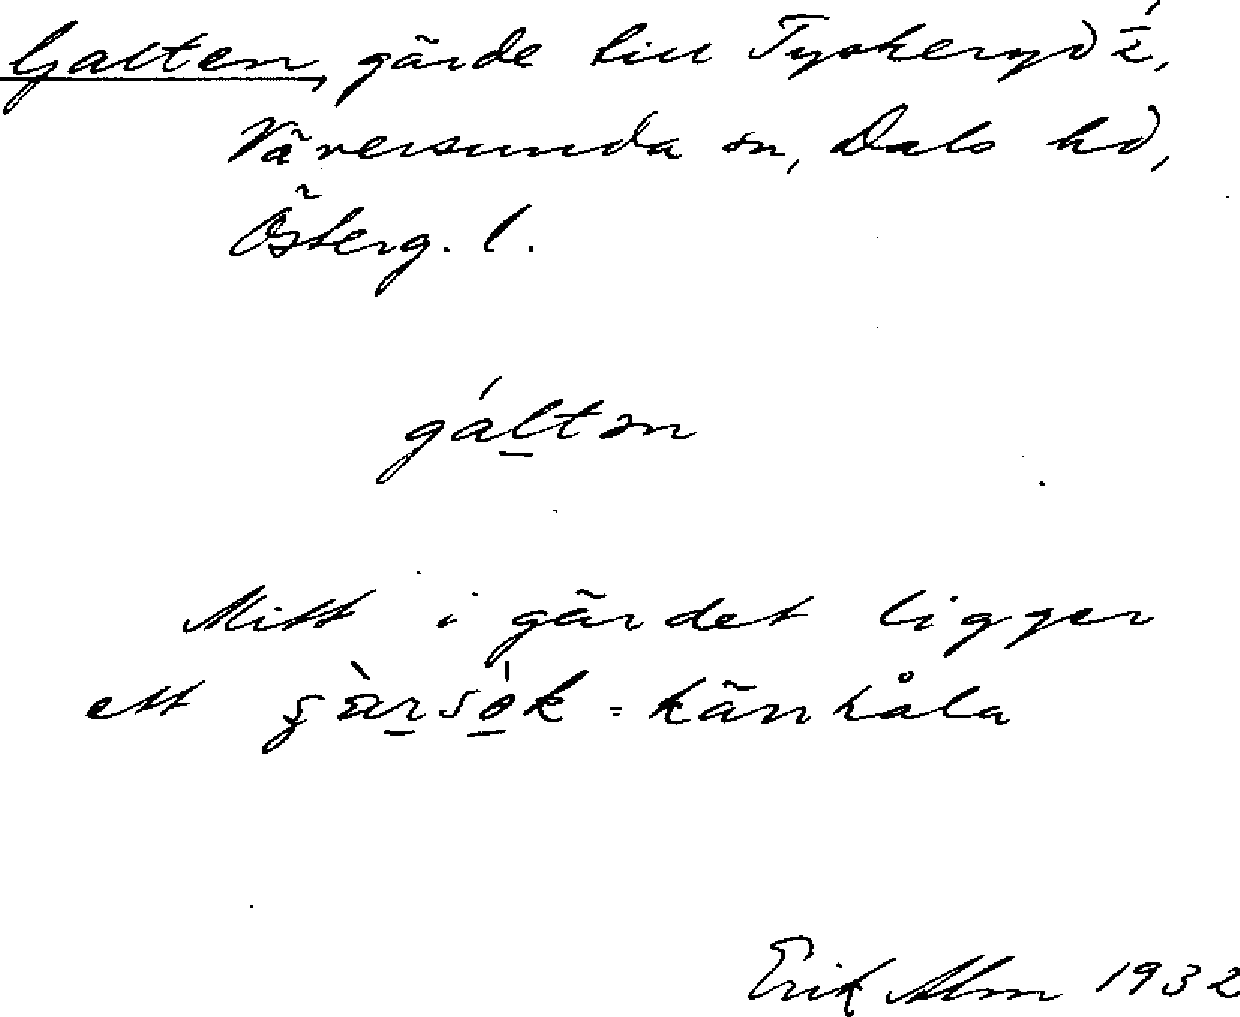 Galten, gärde till Tyskeryd ½,
Väversunda sn, Dals hd,
Österg. l.
gáltən
Mitt i gärdet ligger
ett = kärrhåla
Erik Alm 1932